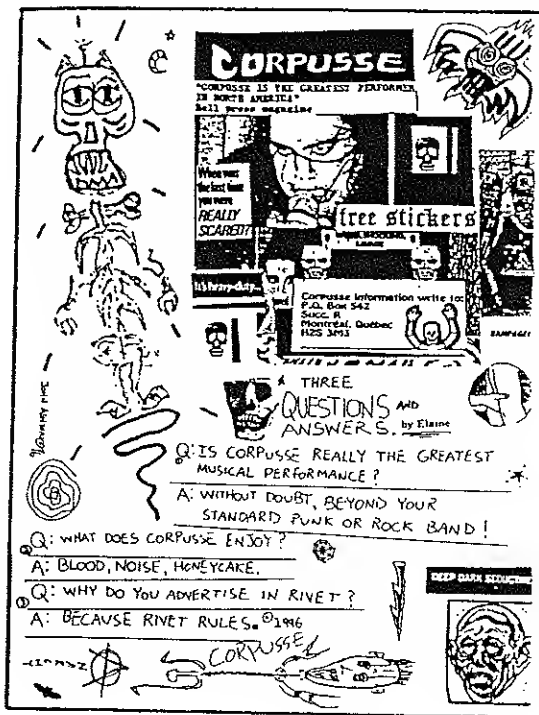 CORPUSSE
"CORPUSSE IS THE GREATEST PERFORMER
IN NORTH AMERICA"
Hell press magazine
When was
the last time
you were
REALLY
SCARED?
free stickers
It's heavy-duty...
Corpusse Information write to:
P.O. Box 542
Succ. R
Montréal, Québec
H2S 3M3
RAMPAGE!
THREE
QUESTIONS AND
ANSWERS. by Elaine
Q: IS CORPUSSE REALLY THE GREATEST
MUSICAL PERFORMANCE?
A: WITHOUT DOUBT, BEYOND YOUR
STANDARD PUNK OR ROCK BAND!
Q: WHAT DOES CORPUSSE ENJOY?
A: BLOOD, NOISE, HONEYCAKE.
Q: WHY DO YOU ADVERTISE IN RIVET?
A: BECAUSE RIVET RULES. ©1996
DEEP DARK SEDUCTIVE
CORPUSSE